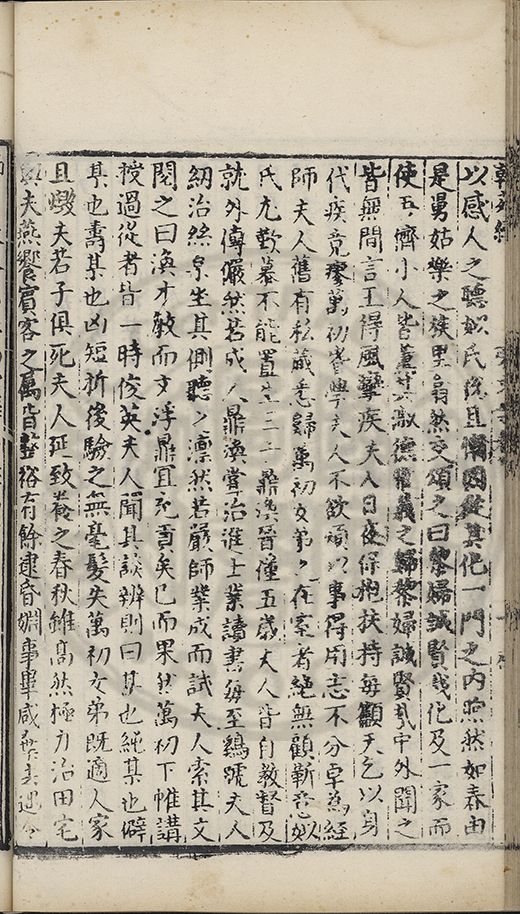 以感人之聽姒氏復且慚因從其化一門之內煦然如春由
是舅姑樂之族里翕然交頌之曰黎婦誠賢哉化及一家而
使五儕小人皆薰其淑德慕義之歸黎婦誠賢哉中外聞之
皆無間言王得風攣疾夫人日夜保抱扶持每籲天乞以身
代疾竟瘳萬初嗜學夫人不欲煩以事得用志不分卓為經
師夫人舊有私藏悉歸萬初女弟之在室者絕無顧靳悉姒
氏尤歎慕不能置生三二鼎渙晉僅五歲夫人皆自教督及
就外傅儼然若成人鼎渙嘗治進士業讀書每至鷄號夫人
紉治絲枲坐其側聽之凛然若嚴師業成而試夫人索其文
閱之曰渙才敏而文浮鼎宜充貢矣已而果然萬初下帷講
授過從者皆一時俊英夫人聞其談辨則曰某也純某也僻
某也壽某也凶短折後驗之無毫髮失萬初女弟既適人家
且燬夫若子俱死夫人延致養之春秋雖高然極力治田宅
與夫燕饗賓客之萬皆整裕有餘逮昏姻事畢咸棄其遺令